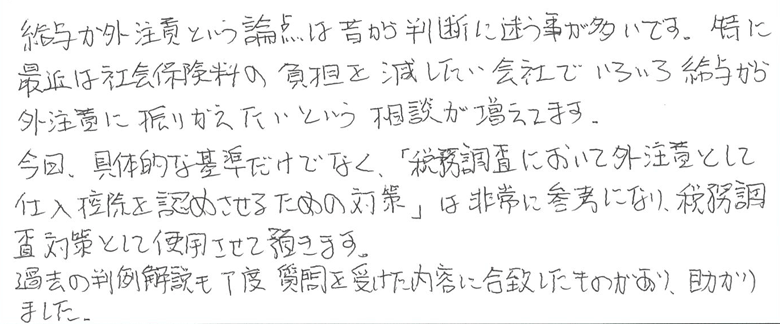 給与か外注費という論点は昔から判断に迷う事が多いです。特に
最近は社会保険料の負担を減したい会社でいろいろ給与から
外注費に振りかえたいという相談が増えてます。
今回、具体的な基準だけでなく、「税務調査において外注費として
仕入控除を認めさせるための対策」は非常に参考になり、税務調
査対策として使用させて頂きます。
過去の判例解説も丁度質問を受けた内容に合致したものがあり、助かり
ました。